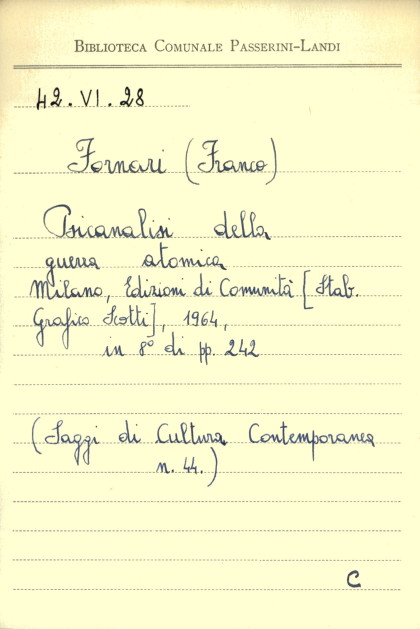 Biblioteca Comunale Passerini-Landi
42.VI.28
Fornari (Franco)
Psicanalisi della
guerra atomica
Milano, Edizioni di Comunità [Stab.
Grafico Scotti], 1964,
in 8° di pp. 242
(Saggi di Cultura Contemporanea
n. 44.)
C